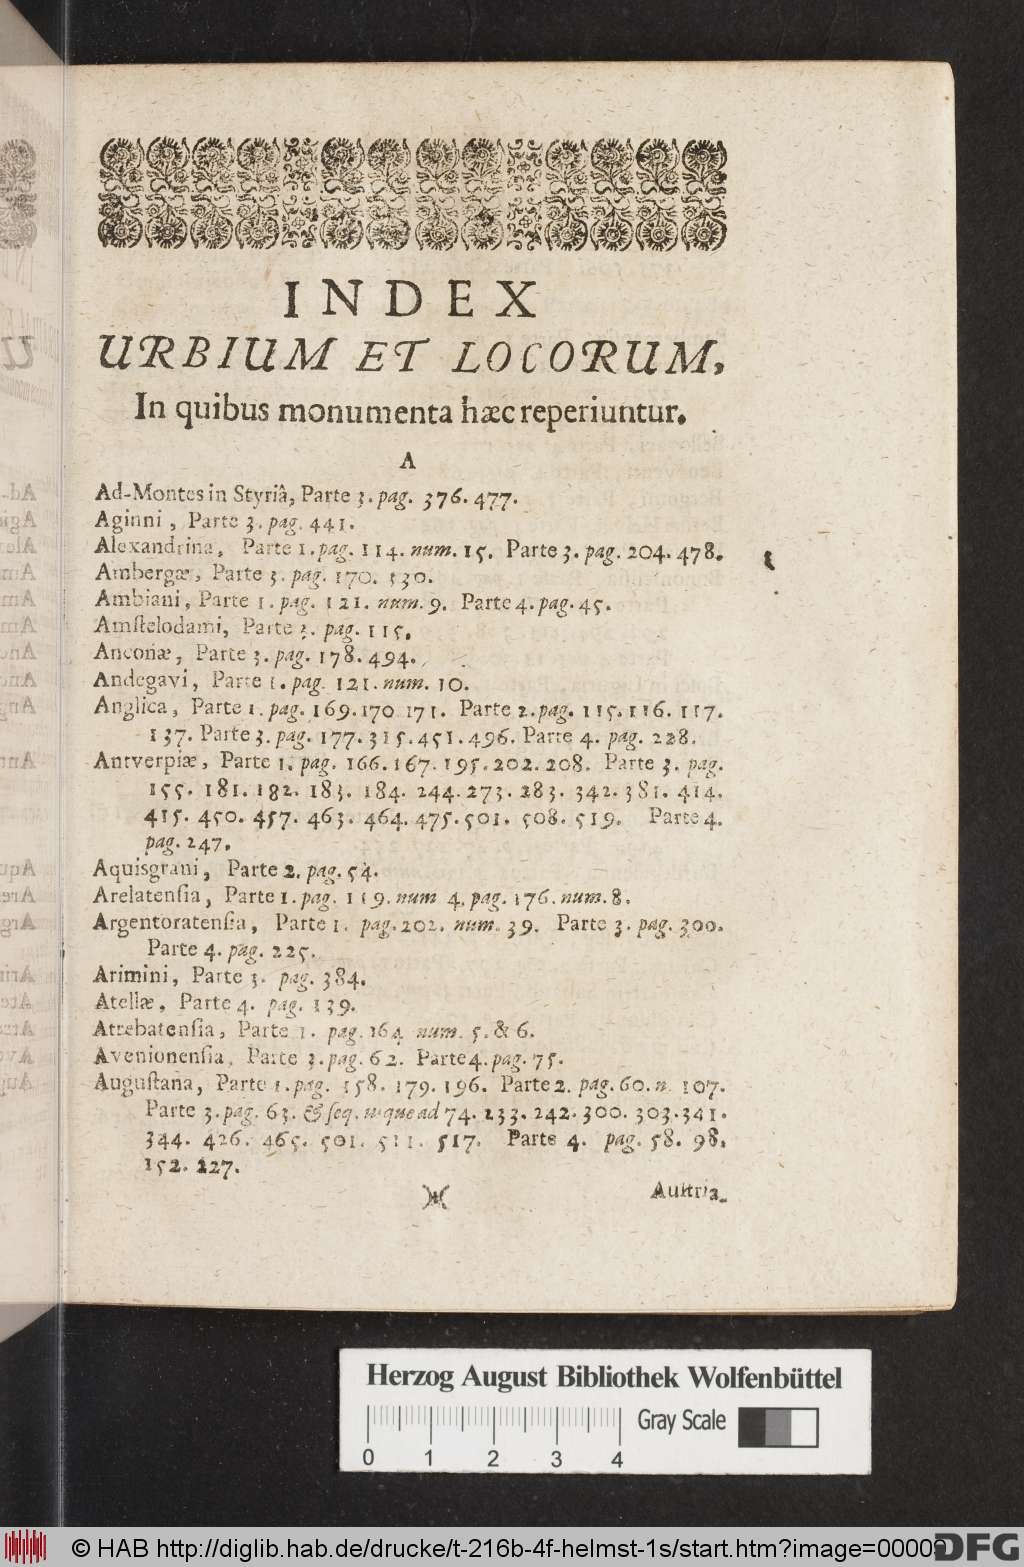 INDEX
URBIUM ET LOCORUM,
In quibus monumenta hæc reperiuntur.
A
Ad-Montes in Styriâ, Parte 3. pag. 376. 477.
Aginni, Parte 3. pag. 441.
Alexandrina, Parte 1. pag. 114. num. 15. Parte 3. pag. 204. 478.
Ambergæ, Parte 3. pag. 170. 330.
Ambiani, Parte 1. pag. 121. num. 9. Parte 4. pag. 45.
Amſtelodami, Parte 3. pag. 115.
Anconæ, Parte 3. pag. 178. 494.
Andegavi, Parte 1. pag. 121. num. 10.
Anglica, Parte 1. pag. 169. 170 171. Parte 2. pag. 115. 116. 117.
137. Parte 3. pag. 177. 315. 451. 496. Parte 4. pag. 228.
Antverpiæ, Parte 1. pag. 166. 167. 195. 202. 208. Parte 3. pag.
155. 181. 182. 183. 184. 244. 273. 283. 342. 381. 414.
415. 450. 457. 463. 464. 475. 501. 508. 519. Parte 4.
pag. 247.
Aquisgrani, Parte 2. pag. 54.
Arelatenſia, Parte 1. pag. 119. num 4. pag. 176. num. 8.
Argentoratenſia, Parte 1. pag. 202. num. 39. Parte 3. pag. 300.
Parte 4. pag. 225.
Arimini, Parte 3. pag. 384.
Atellæ, Parte 4. pag. 139.
Atrebatenſia, Parte 1. pag. 164 num. 5. & 6.
Avenionenſia, Parte 3. pag. 62. Parte 4. pag. 75.
Auguſtana, Parte 1. pag. 158. 179. 196. Parte 2. pag. 60. n. 107.
Parte 3. pag. 63. & ſeq. uſque ad 74. 233. 242. 300. 303. 341.
344. 426. 465. 501. 511. 517. Parte 4. pag. 58. 98.
152. 227.
Auſtria.
Herzog August Bibliothek Wolfenbüttel
Gray Scale
0 1 2 3 4
© HAB http://diglib.hab.de/drucke/t-216b-4f-helmst-1s/start.htm?image=0000
DFG